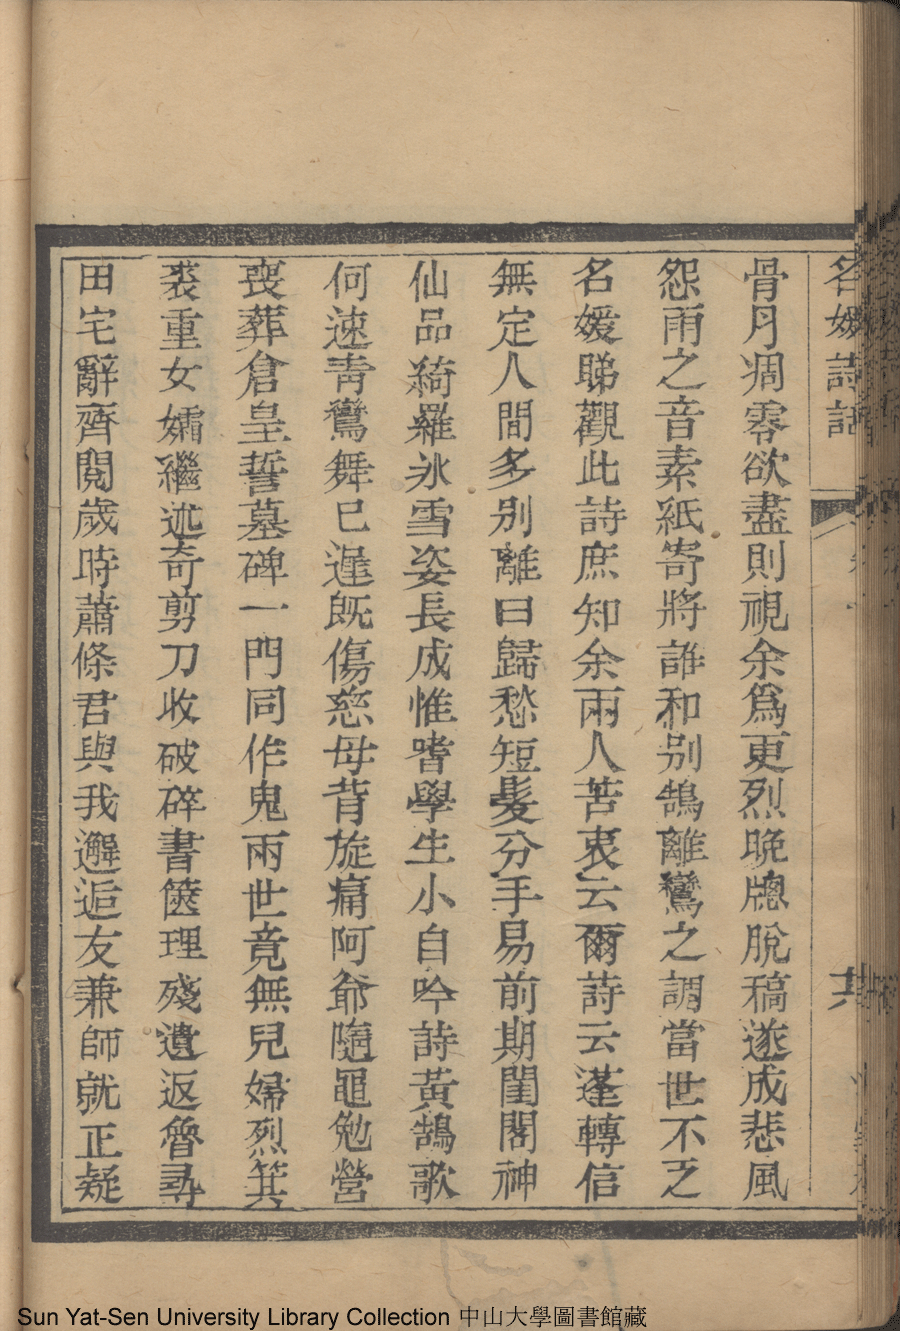 名媛詩話
骨月凋零欲盡則視余爲更烈晚牕脫稿遂成悲風
怨雨之音素紙寄將誰和別鵠離鸞之調當世不乏
名媛睇觀此詩庶知余兩人苦衷云爾詩云蓬轉信
無定人間多別離曰歸愁短髮分手易前期閨閣神
仙品綺羅氷雪姿長成惟嗜學生小自吟詩黃鵠歌
何速靑鸞舞已遲既傷慈母背旋痛阿爺隨黽勉營
喪葬倉皇誓墓碑一門同作鬼兩世竟無兒婦烈箕
裘重女孀繼述奇剪刀收破碎書篋理殘遺返魯尋
田宅辭齊閱歲時蕭條君與我邂逅友兼師就正疑
Sun Yat-Sen University Library Collection 中山大學圖書館藏